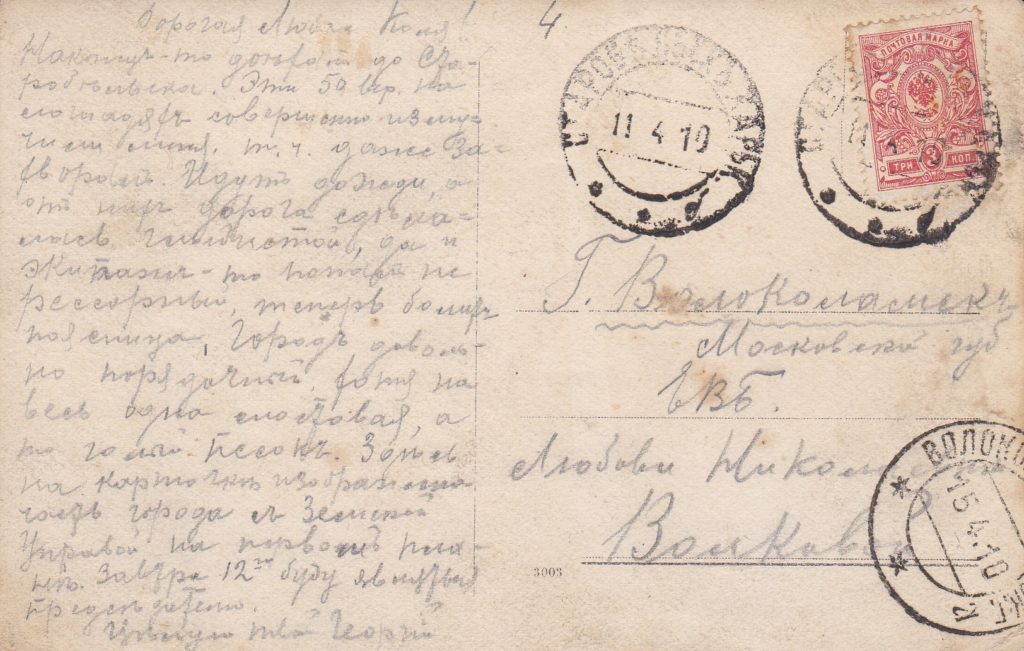 Дорогая Люба и Коля!
Наконецъ-то доѣхалъ до Ста-
робѣльска. Эти 50 вер. на
лошадяхъ совершенно изму-
чили меня, т. ч. даже за-
хворалъ. Идутъ дожди, а
отъ нихъ дорога сдѣла-
лась, да и
экипажъ-то попался не
рессорный, теперь болитъ
поясница. Городъ доволь-
но порядочный, хотя на
весь одна мостовая, а
то голый песокъ. Здѣсь
на карточкѣ изображена
часть города съ Земской
Управой на первомъ пла-
нѣ. Завтра 12го буду являться
предсѣдателю.
Цѣлую твой Георгій
4.
СТАРОБѢЛЬСКЪ ХАРЬК.
11 4 10
ПОЧТОВАЯ МАРКА
ТРИ 3 КОП.
Г. Волоколамскъ
Московской губ
ЕВБ.
Любови Николаевнѣ
Волковой
3003
ВОЛОКОЛ
15 4 10